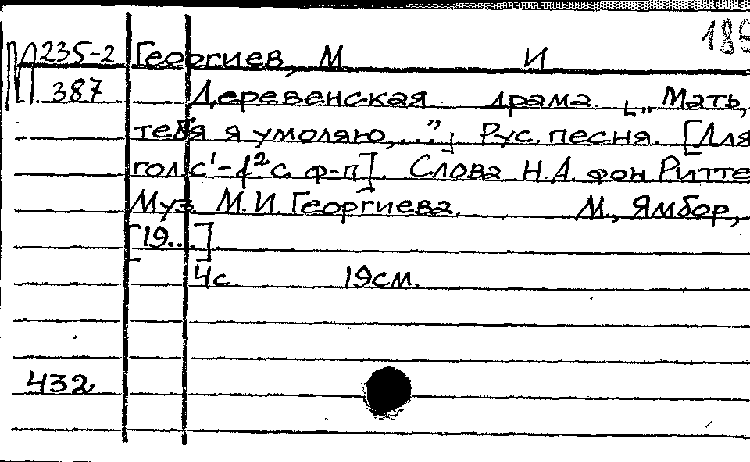 185
П 235-2 Георгиев, М И
387 Деревенская драма. [„Мать,
тебя я умоляю,..."] Рус. песня. [Для
гол. с¹-f² с ф-п]. Слова Н.А. фон Ритте
Муз. М.И. Георгиева. М., Ямбор,
[19..]
4с. 19см.
432